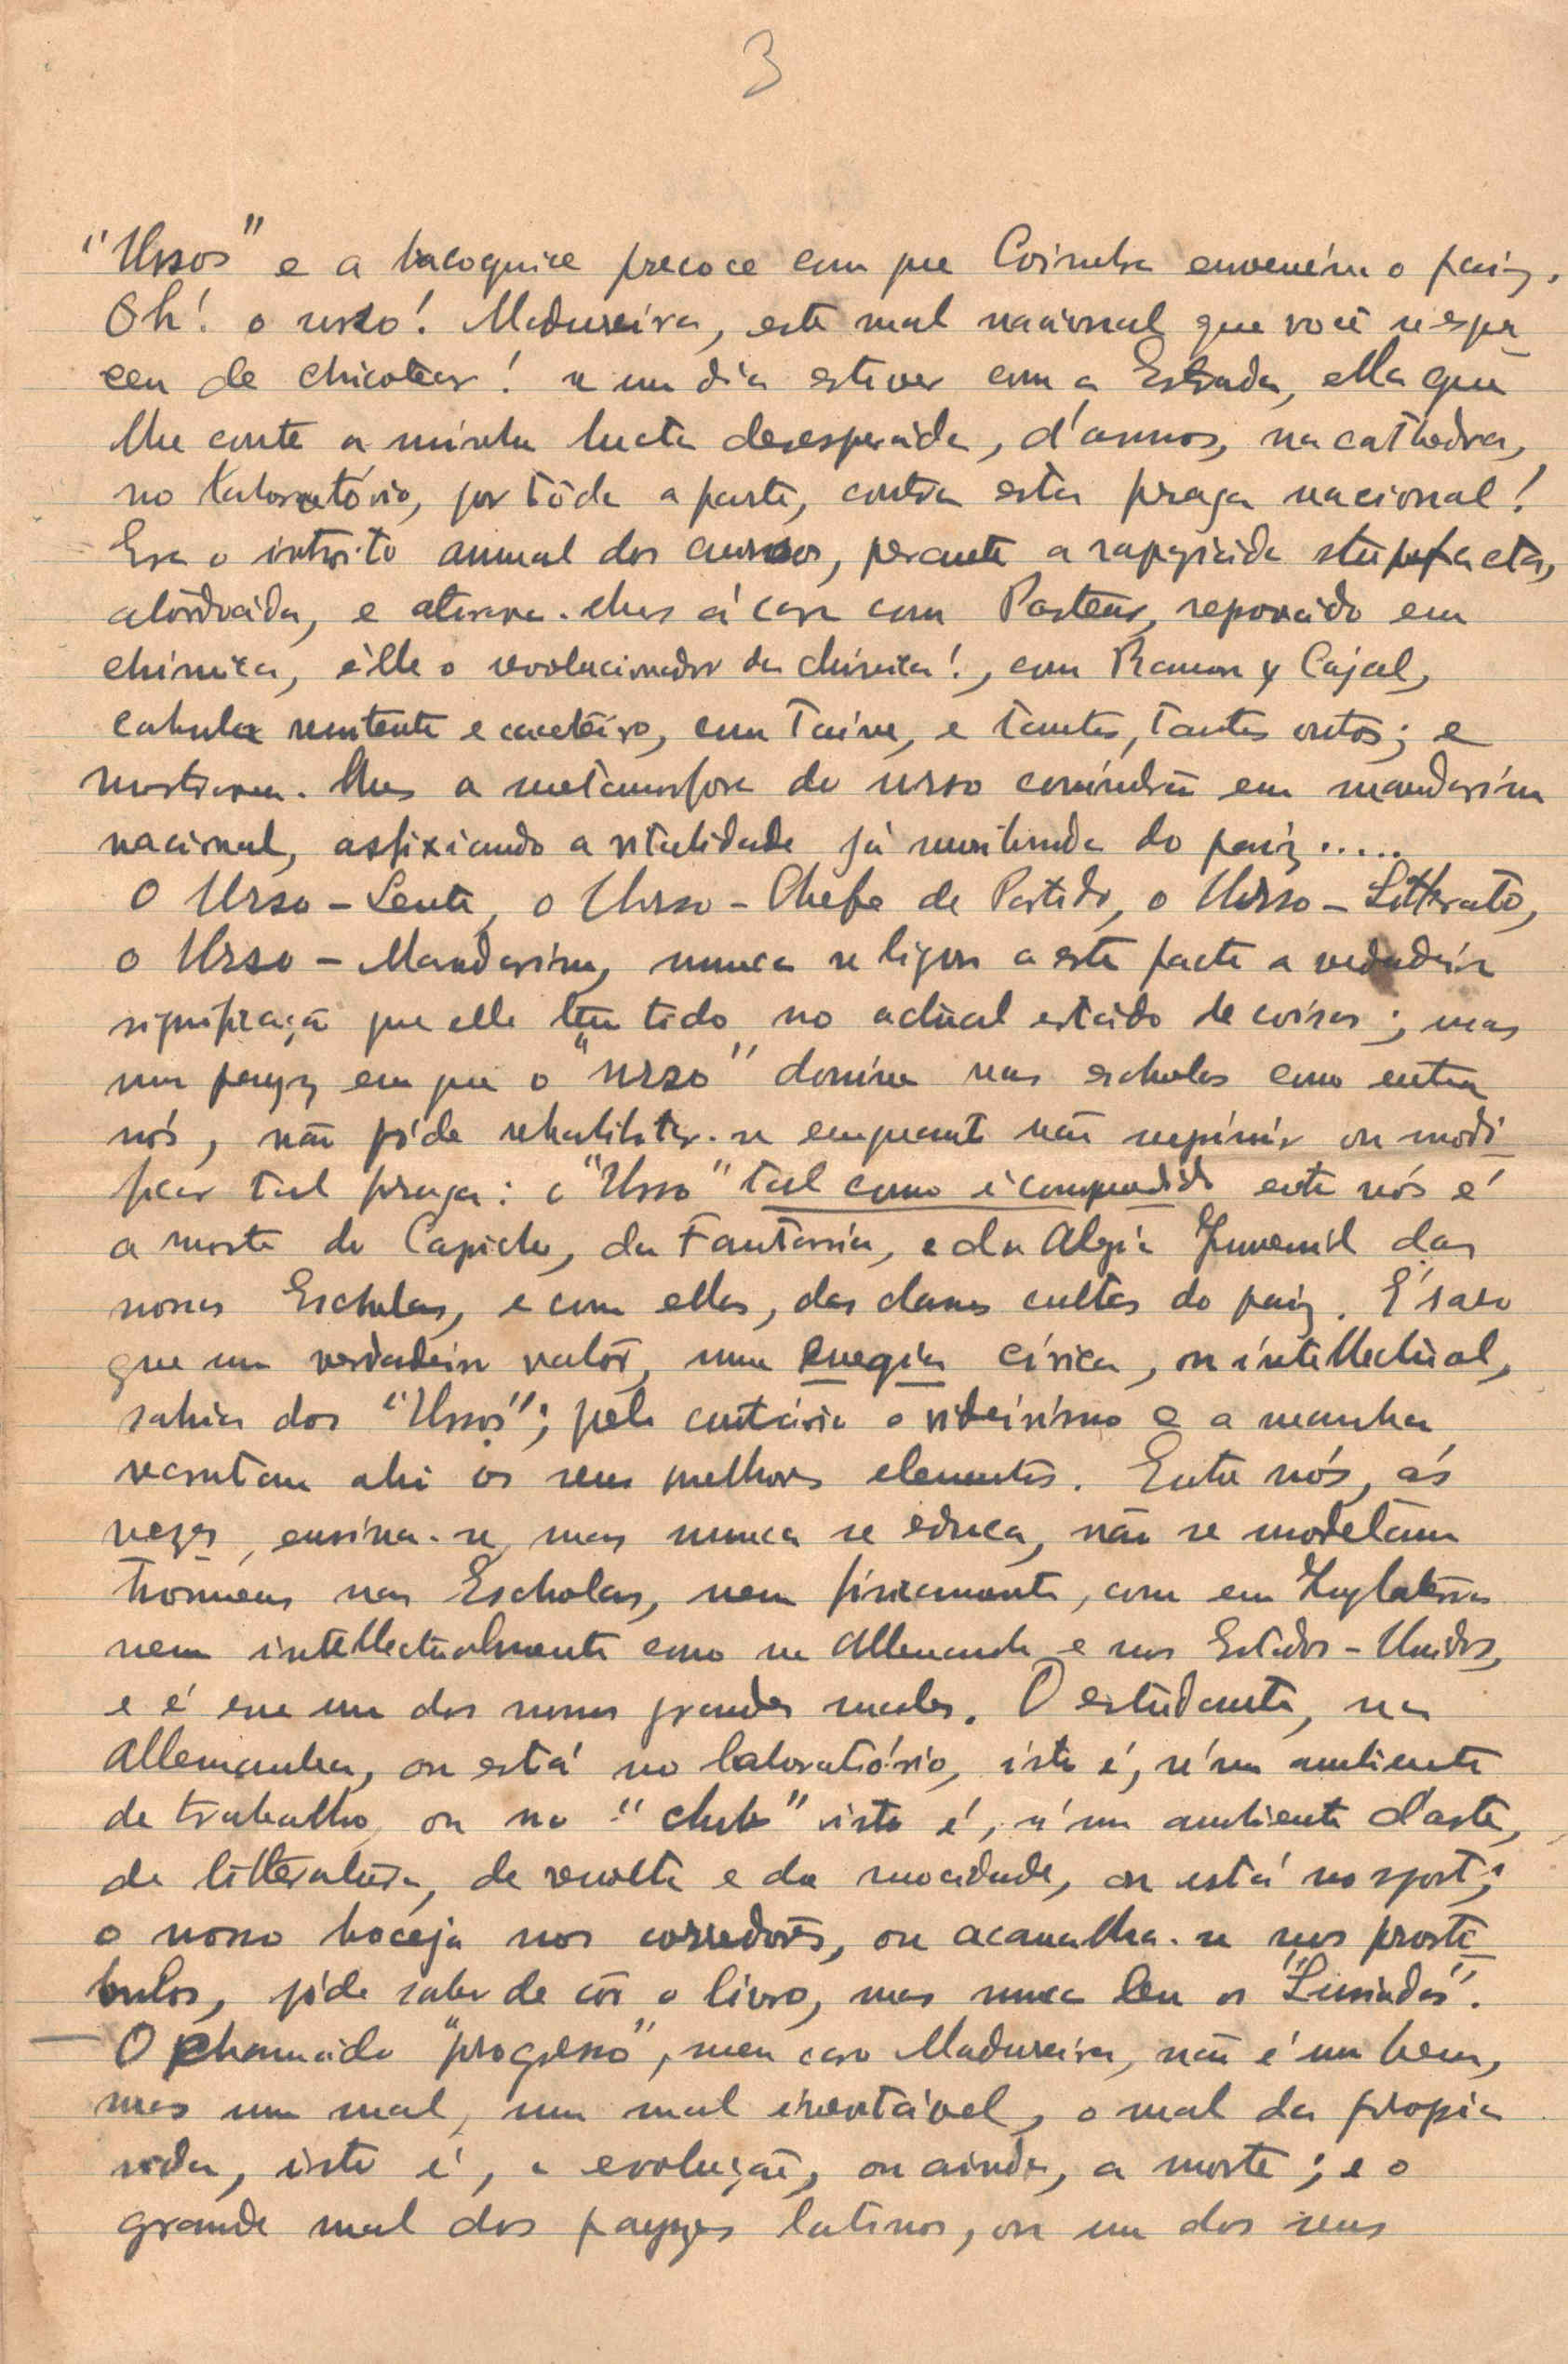 3
"Ursos" e a bacoquice precoce com que Coimbra envenéna o paiz.
Oh! o urso! Madureira, este mal nacional que você s'esque
ceu de chicotear! se um dia estiver com a Estrada, ella que
lhe conte a minha lucta desesperáda, d'annos, na cathedra,
no laboratório, por tôda a parte, contra esta praga nacional!
Era o intróito annual dos cursos, perante a rapaziáda stupefacta,
atordoáda, e atirava-lhes á cara com Pasteur, reprovádo em
chimica, êlle o revolucionador da chimica!, com Ramon y Cajal,
cabula renitente e cacetêiro, com Taine, e tantos, tantos outros; e
mostrava-lhes a metamorfose do urso coimbrão em mandarim
nacional, asfixiando a vitalidade já moribunda do paiz.....
O Urso - Lente, o Urso - Chefe de Partido, o Urso - Litterato,
o Urso - Mandarim, nunca se ligou a este facto a verdadeira
significação que elle tem tido no actual estádo de coisas; mas
um payz em que o "urso" domina nas escholas como entre
nós, não póde rehabilitar-se emquanto não suprimir ou modi
ficar tal praga: o "Urso" tal como é comprendido entre nós é
a morte do Capricho, da Fantasia, e da Alegria Juvenil das
nossas Escholas, e com ellas, das classes cultas do paiz. E' raro
que um verdadeiro valôr, uma energia cívica, ou intellectual,
sahia dos "Ursos"; pelo contrário o videirismo e a manha
recrutam ahi os seus melhores elementos. Entre nós, ás
vezes, ensina-se, mas nunca se educa, não se modelam
hômens nas Escholas, nem fisicamente, como em Inglaterra
nem intellectualmente como na Allemanha e nos Estados-Unidos,
e é esse um dos nossos grandes males. O estudante, na
Allemanha, ou está no laboratiório, isto é, n'um ambiente
de trabalho, ou no "club" isto é, n'um ambiente d'arte,
de litteratura, de revolta e de mocidade, ou está no sport;
o nosso boceja nos corredores, ou acanalha-se nos prosti
bulos, póde saber de côr o livro, mas nunca leu os "Lusiadas".
— O chamádo "progresso", meu caro Madureira, não é um bem,
mas um mal, um mal inevitável, o mal da propia
vida, isto é, a evolução, ou ainda, a morte; e o
grande mal dos payzes latinos, ou um dos seus